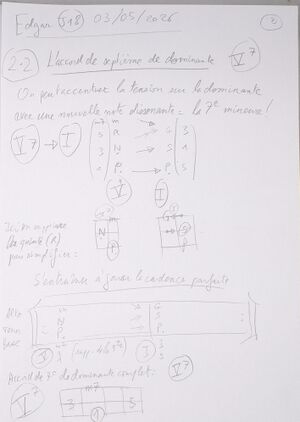 Edgar 03/05/2026
2.2 L'accord de septième de dominante V7
On peut accentuer la tension sur la dominante
avec une nouvelle note dissonante = la 7e mineure !
V7 → I
m7 m → G 3
5 R
3 N → S 1
1 P. → P. 5
V I
Ici on supprime
la quinte (R)
pour simplifier :
N
P
S'entraîner à jouer la cadence parfaite
m → G
N → S
P. → P.
V (supp. de la 5te) I
Accord de 7e de dominante complet : V7
V7
m7
3 5
1